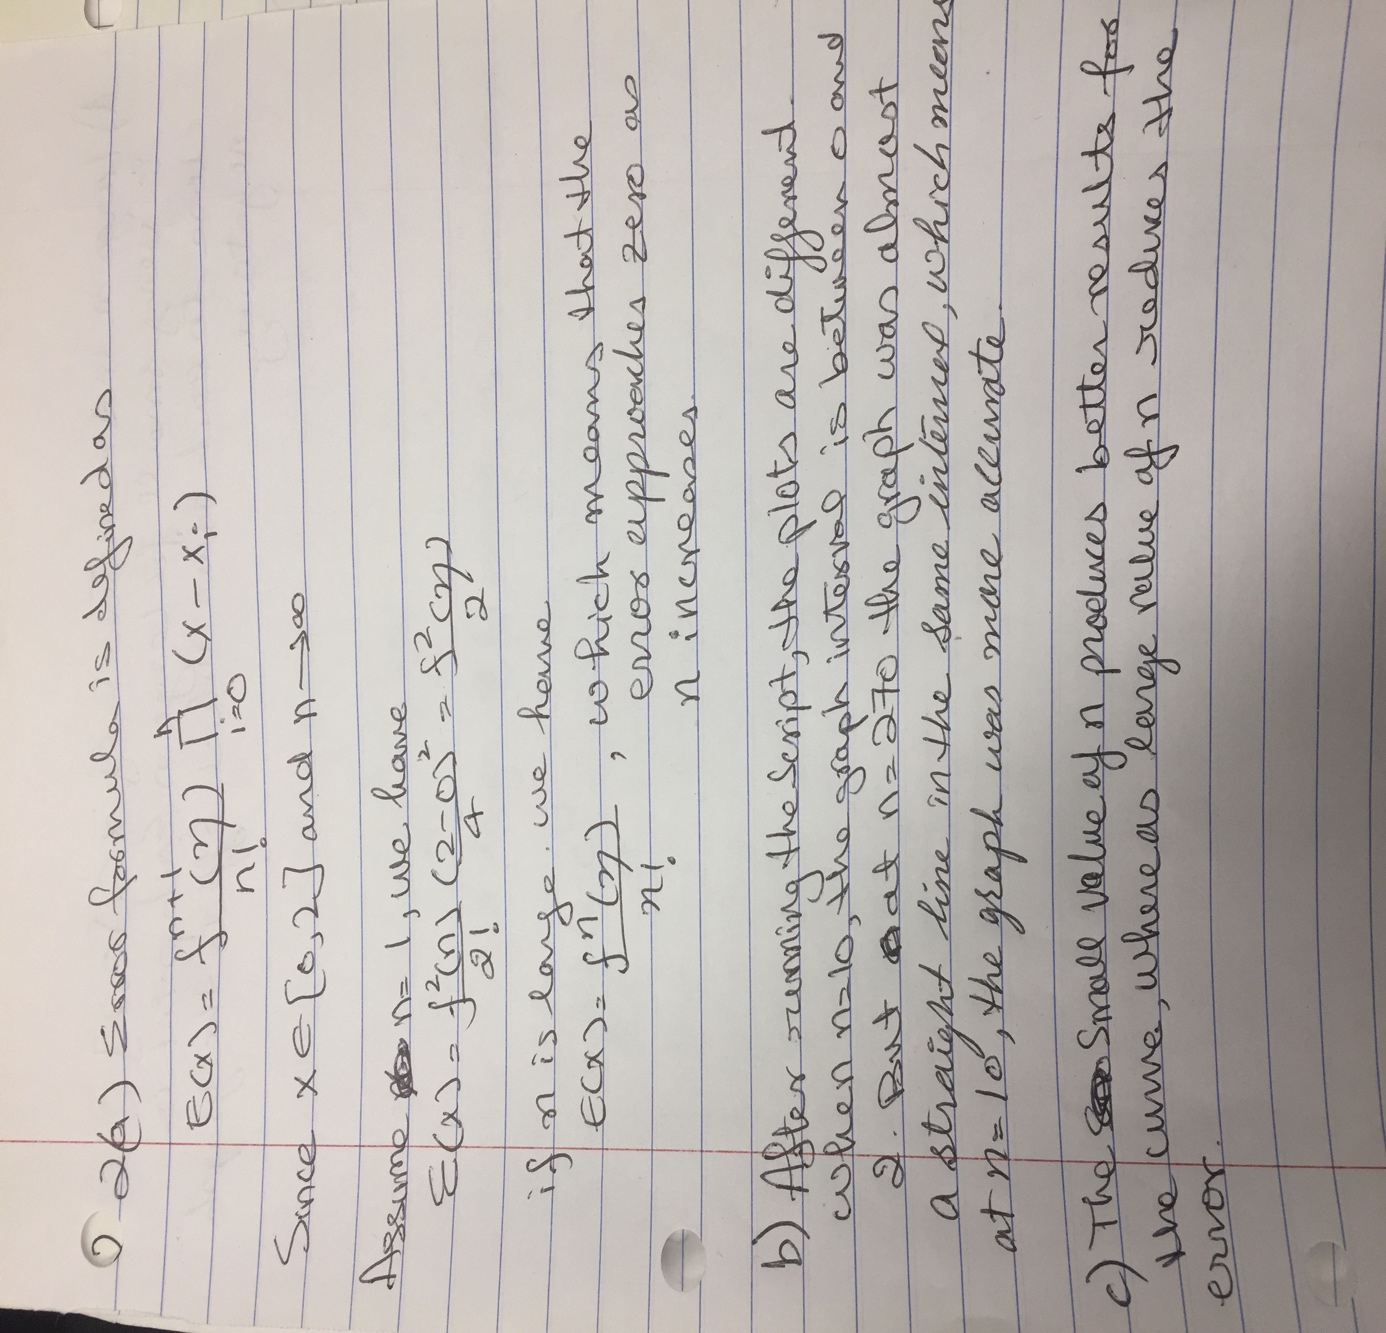 2(a) Error formula is defined as
E(x) = f^{n+1}(η)/n! ∏_{i=0}^{n} (x - x_i)
Since x ∈ [0,2] and n → ∞
Assume n = 1, we have
E(x) = f²(η)/2! (2-0)²/4 = f²(η)/2
if n is large. we have
E(x) = f^n(η)/n!, which means that the
error approaches zero as
n increases.
b) After running the script, the plots are different.
when n=10, the graph interval is between 0 and
2. But at n=270 the graph was almost
a straight line in the same interval, which means
at n=10, the graph was more accurate.
c) The Small value of n produces better results for
the curve, where as large value of n reduces the
error.